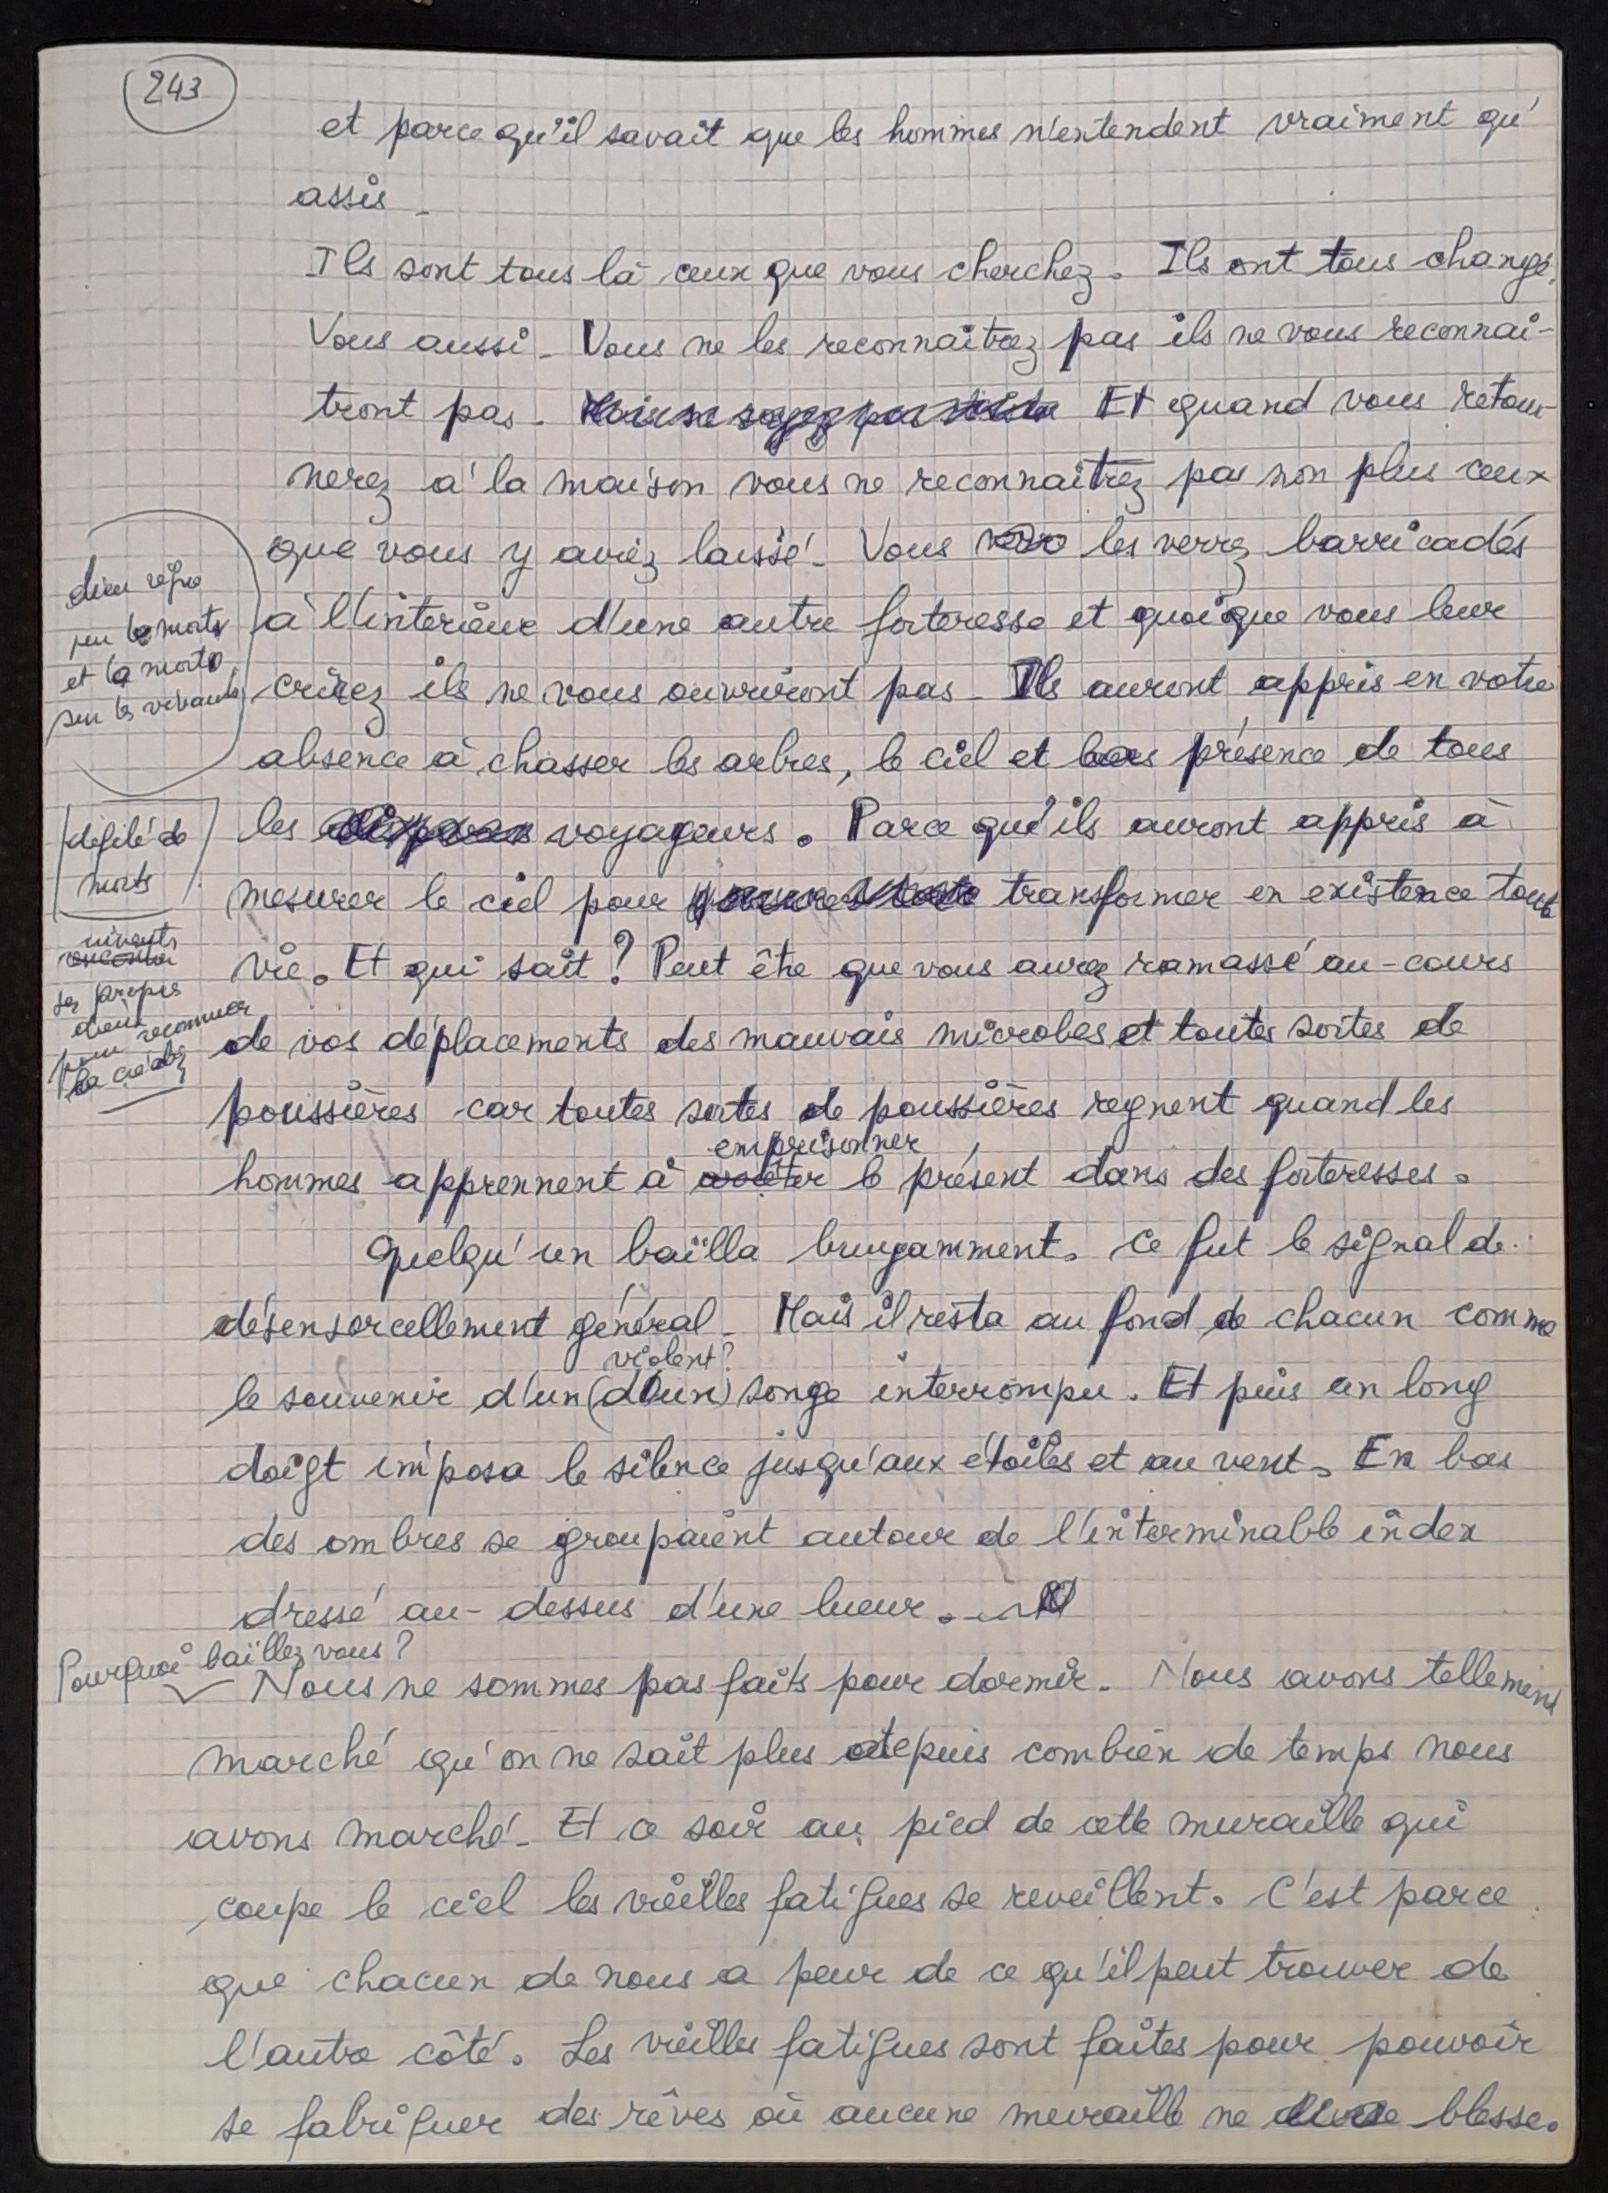 243
et parce qu'il savait que les hommes n'entendent vraiment qu'
assis.
Ils sont tous là ceux que vous cherchez. Ils ont tous changé.
Vous aussi. Vous ne les reconnaîtrez pas ils ne vous reconnaî-
tront pas. Et quand vous retour-
nerez à la maison vous ne reconnaîtrez pas non plus ceux
que vous y aviez laissé. Vous les verrez barricadés
à l'interieur d'une autre forteresse et quoique vous leur
criiez ils ne vous ouvriront pas. Ils auront appris en votre
absence à chasser les arbres, le ciel et présence de tous
les voyageurs. Parce qu'ils auront appris à
mesurer le ciel pour transformer en existence toute
vie. Et qui sait ? Peut être que vous aurez ramassé au-cours
de vos déplacements des mauvais microbes et toutes sortes de
poussières car toutes sortes de poussières regnent quand les
emprisonner
hommes apprennent à le présent dans des forteresses.
Quelqu'un baïlla bruyamment. Ce fut le signal de
désensorcellement général. Mais il resta au fond de chacun comme
violent ?
le souvenir d'un (d'un) songe interrompu. Et puis un long
doigt imposa le silence jusqu'aux étoiles et au vent. En bas
des ombres se groupaient autour de l'interminable index
dressé au-dessus d'une lueur.
Pourquoi baïllez vous ?
Nous ne sommes pas faits pour dormir. Nous avons tellement
marché qu'on ne sait plus depuis combien de temps nous
avons marché. Et ce soir au pied de cette muraille qui
coupe le ciel les vieilles fatigues se reveillent. C'est parce
que chacun de nous a peur de ce qu'il peut trouver de
l'autre côté. Les vieilles fatigues sont faites pour pouvoir
se fabriquer des rêves où aucune muraille ne blesse.
dieu règne
sur les morts
et les morts
sur les vivants
défilé de
morts
vivants
ses propres
dieux
pour recommencer
la